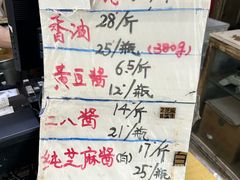 香油 28/斤
25/瓶 (380g)
黄豆酱 6.5/斤
12/瓶
二八酱 14/斤
21/瓶
纯芝麻酱(白) 17/斤
25/瓶